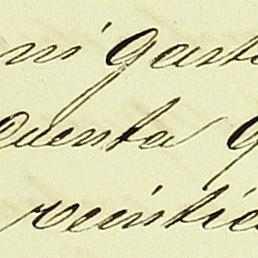 ni gast
cuenta g
veintic